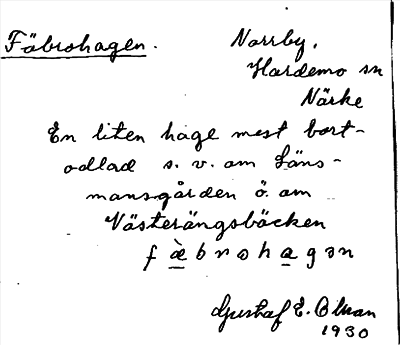 Fäbrohagen.
Norrby,
Hardemo sn
Närke
En liten hage mest bort-
odlad s. v. om Läns-
mansgården ö. om
Västerängsbäcken
fæ̀brohagən
Gustaf E. Olman
1930